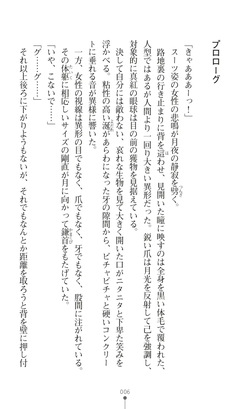 プロローグ
「きゃあああーっ！」
スーツ姿の女性の悲鳴が月夜の静寂を劈く。
路地裏の行き止まりに背を這わせ、見開いた瞳に映すのは全身を黒い体毛で覆われた、
人型ではあるが人間より一回り大きい異形だった。鋭い爪は月光を反射して己を強調し、
対象的に真紅の眼球は目の前の獲物を見据えている。
決して自分には敵わない、哀れな生物を見て大きく開いた口がニタニタと下卑た笑みを
浮かべる。粘性の高い涎があらわになった牙の隙間から、ピチャピチャと硬いコンクリー
トに垂れる音が異様に響いた。
一方、女性の視線は異形の目でもなく、爪でもなく、牙でもなく、股間に注がれている。
その体躯に相応しいサイズの剛直が月に向かって鎌首をもたげていた。
「いや、こないで……」
「グ……グ……」
それ以上後ろに下がりようもないが、それでもなんとか距離を取ろうと背を壁に押し付
006